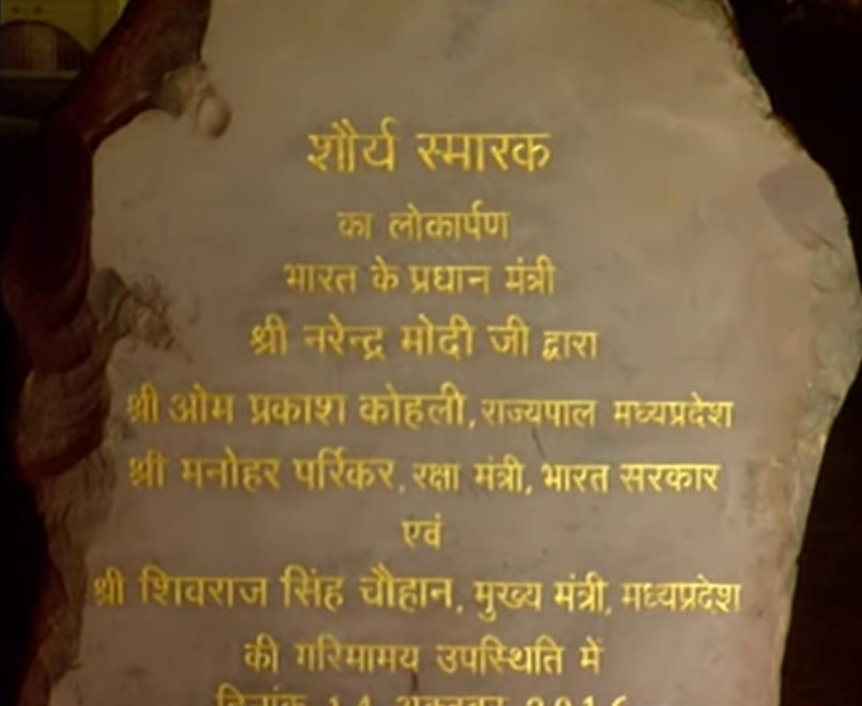 शौर्य स्मारक
का लोकार्पण
भारत के प्रधान मंत्री
श्री नरेन्द्र मोदी जी द्वारा
श्री ओम प्रकाश कोहली, राज्यपाल मध्यप्रदेश
श्री मनोहर पर्रिकर, रक्षा मंत्री, भारत सरकार
एवं
श्री शिवराज सिंह चौहान, मुख्य मंत्री, मध्यप्रदेश
की गरिमामय उपस्थिति में
दिनांक 14 अक्टूबर 2016